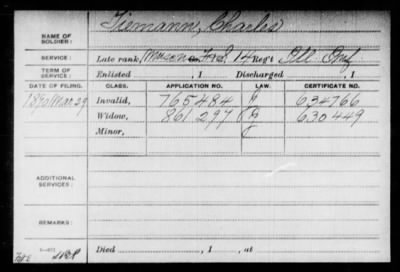 NAME OF SOLDIER: Tiemann, Charles
SERVICE: Late rank, 14 Reg't Ill Inf
TERM OF SERVICE: Enlisted , 1 Discharged , 1
DATE OF FILING. CLASS. APPLICATION NO. LAW. CERTIFICATE NO.
1890 Mar 29 Invalid, 765484 634766
Widow, 861297 630449
Minor,
ADDITIONAL SERVICES:
REMARKS:
Died , 1 , at